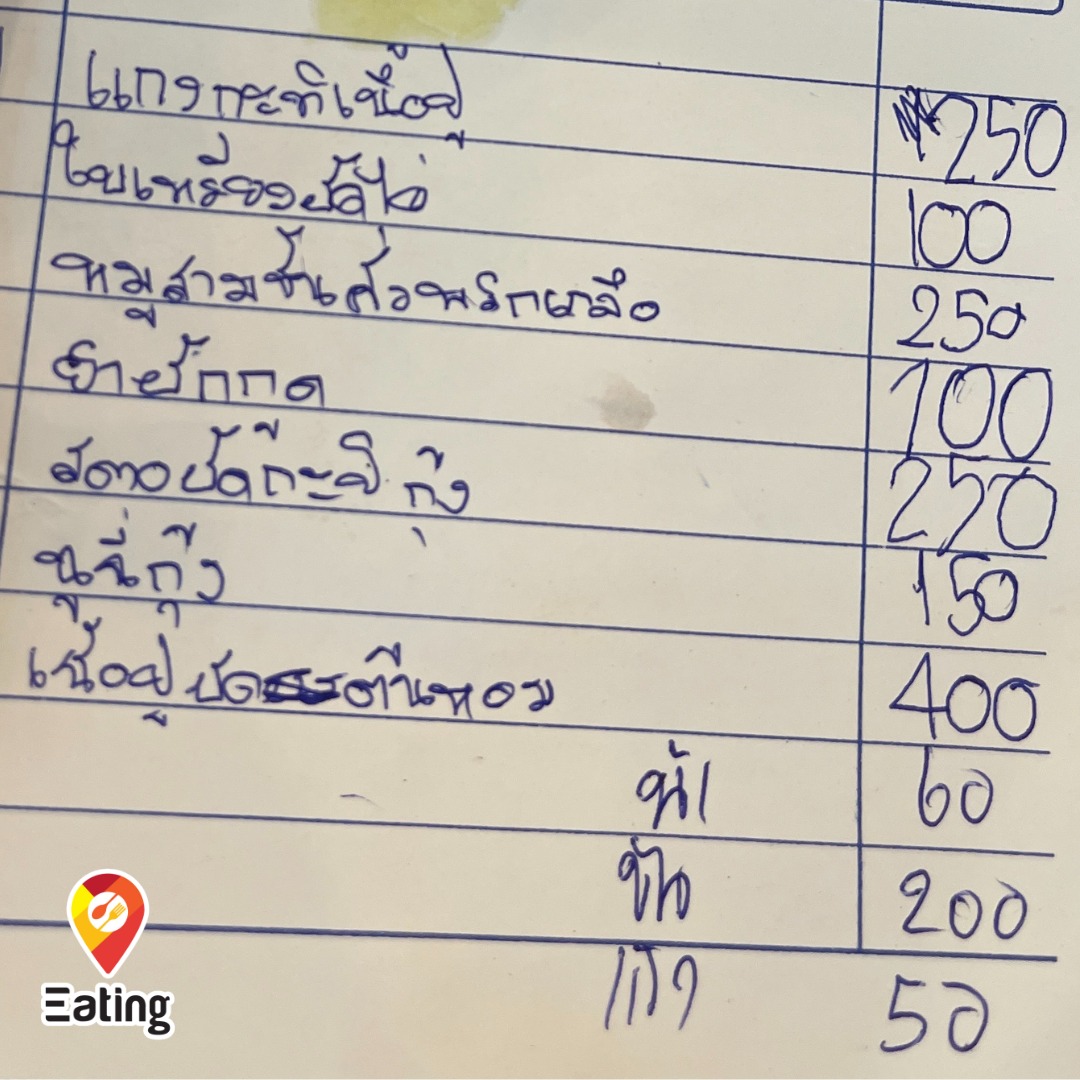 แกงกะทิเนื้อปู 250
ใบเหรียงผัดไข่ 100
หมูสามชั้นคั่วพริกเกลือ 250
100
สตอผัดกะปิ กุ้ง 250
ฉู่ฉี่กุ้ง 150
เนื้อปูผัดต้นหอม 400
น้ำ 60
200
50
Eating